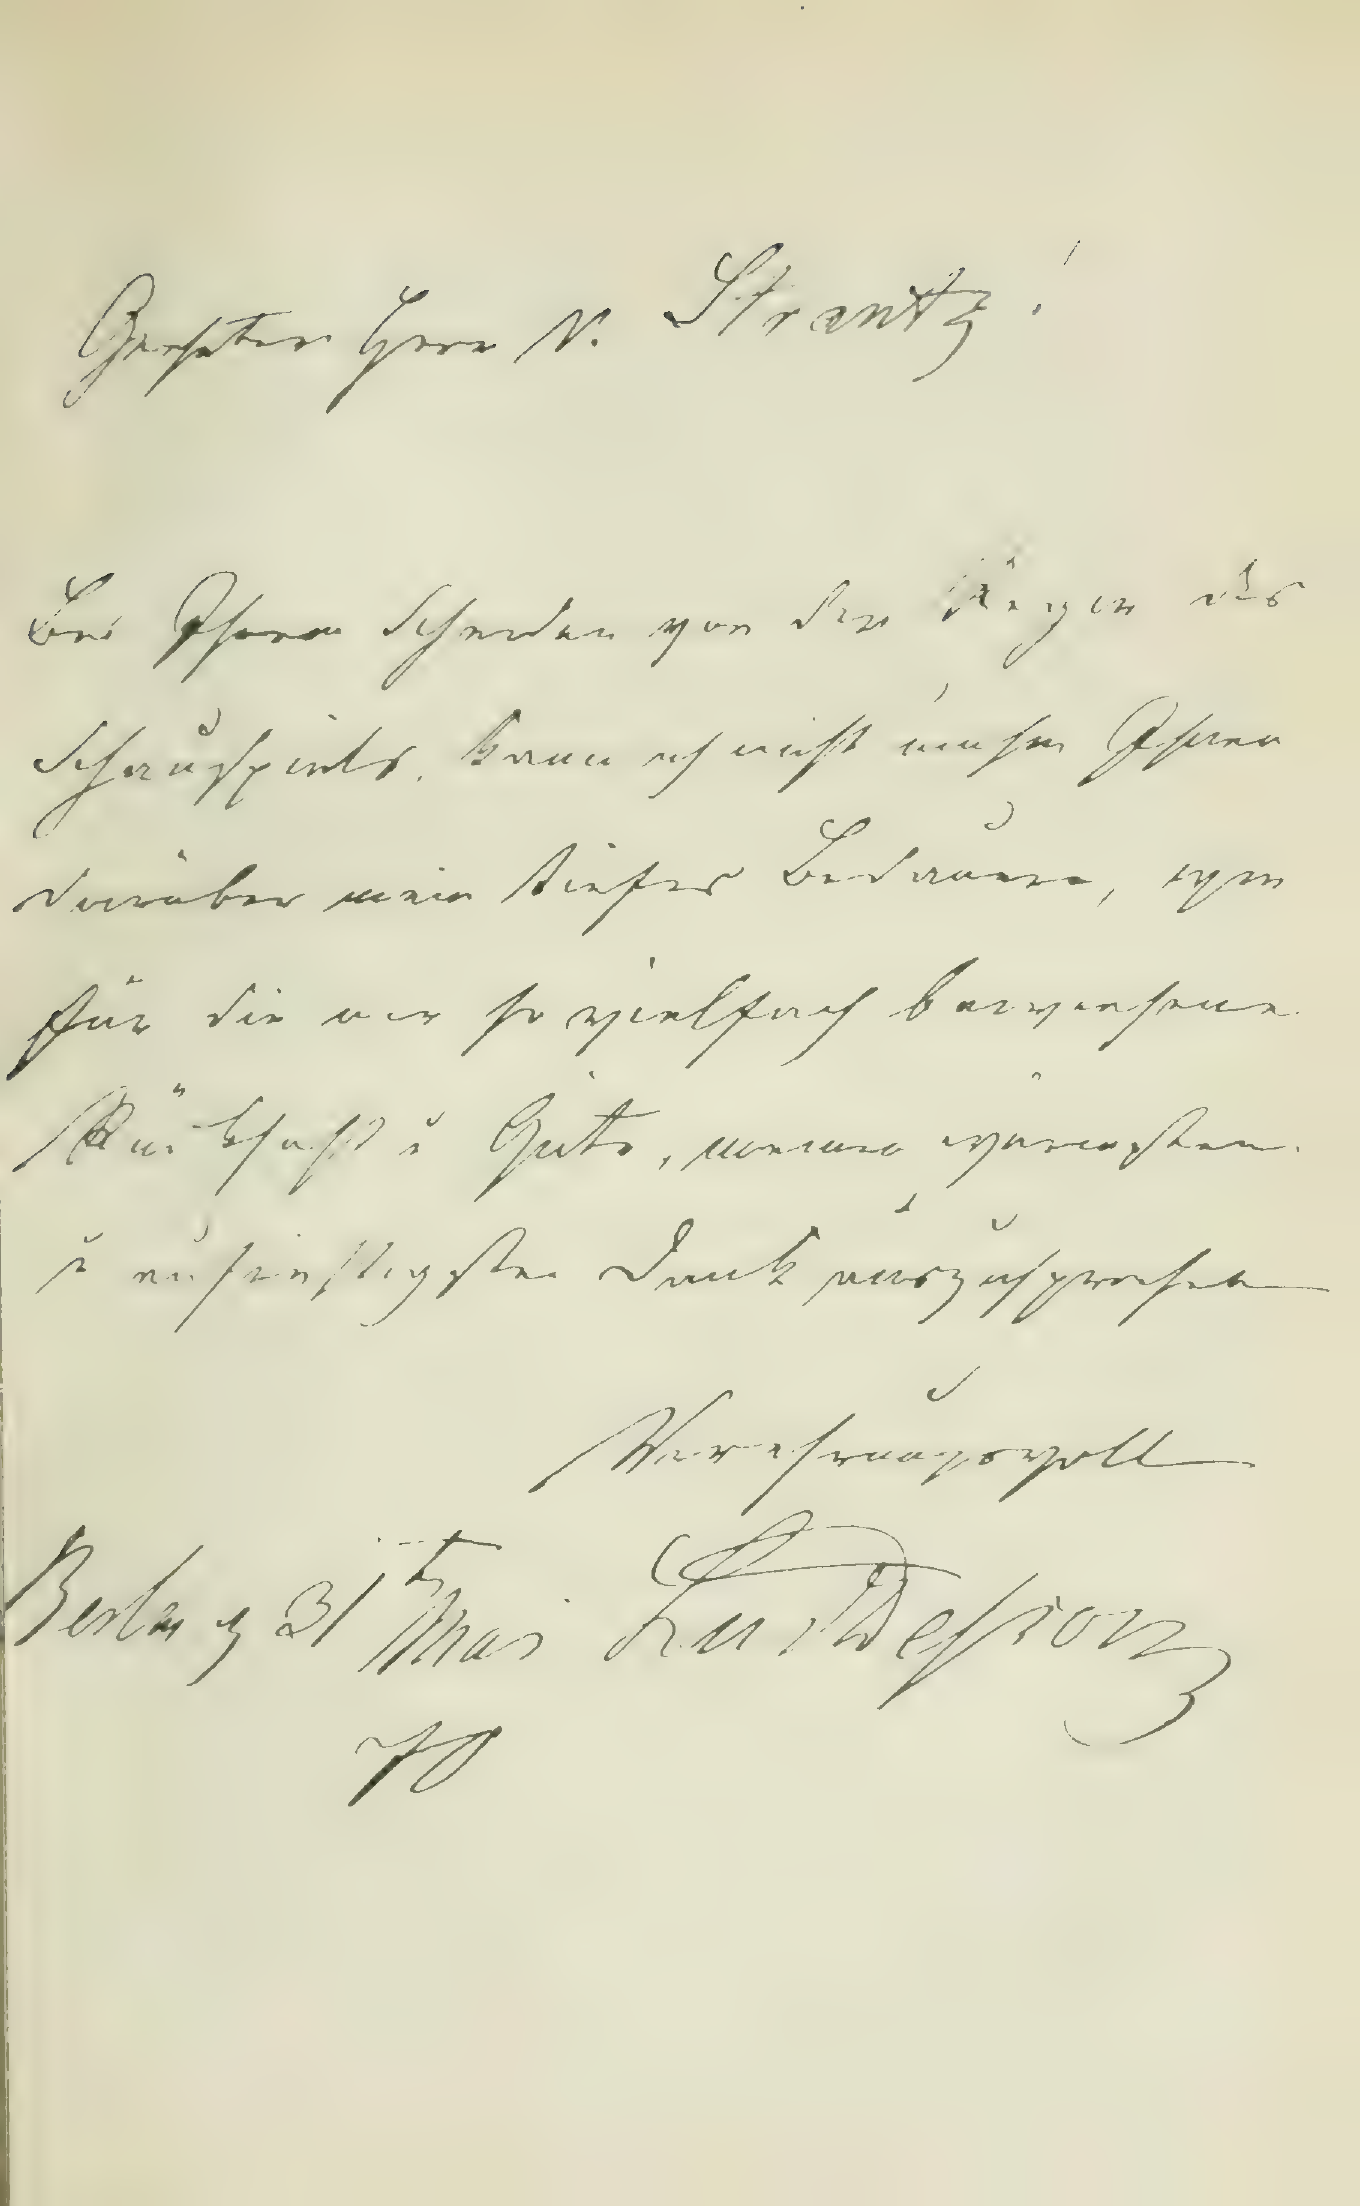 Geehrter Herr v. Strantz!
Bei Ihrem Scheiden von der Regie des
Schauspiels, kann ich nicht umhin Ihnen
darüber mein tiefes Bedauern,
für die mir so vielfach bewiesene
Rücksicht u Güte, meinen wärmsten
u aufrichtigsten Dank auszusprechen
Verehrungsvoll
Berlin d 31t Mai Ludw Dessoir
70